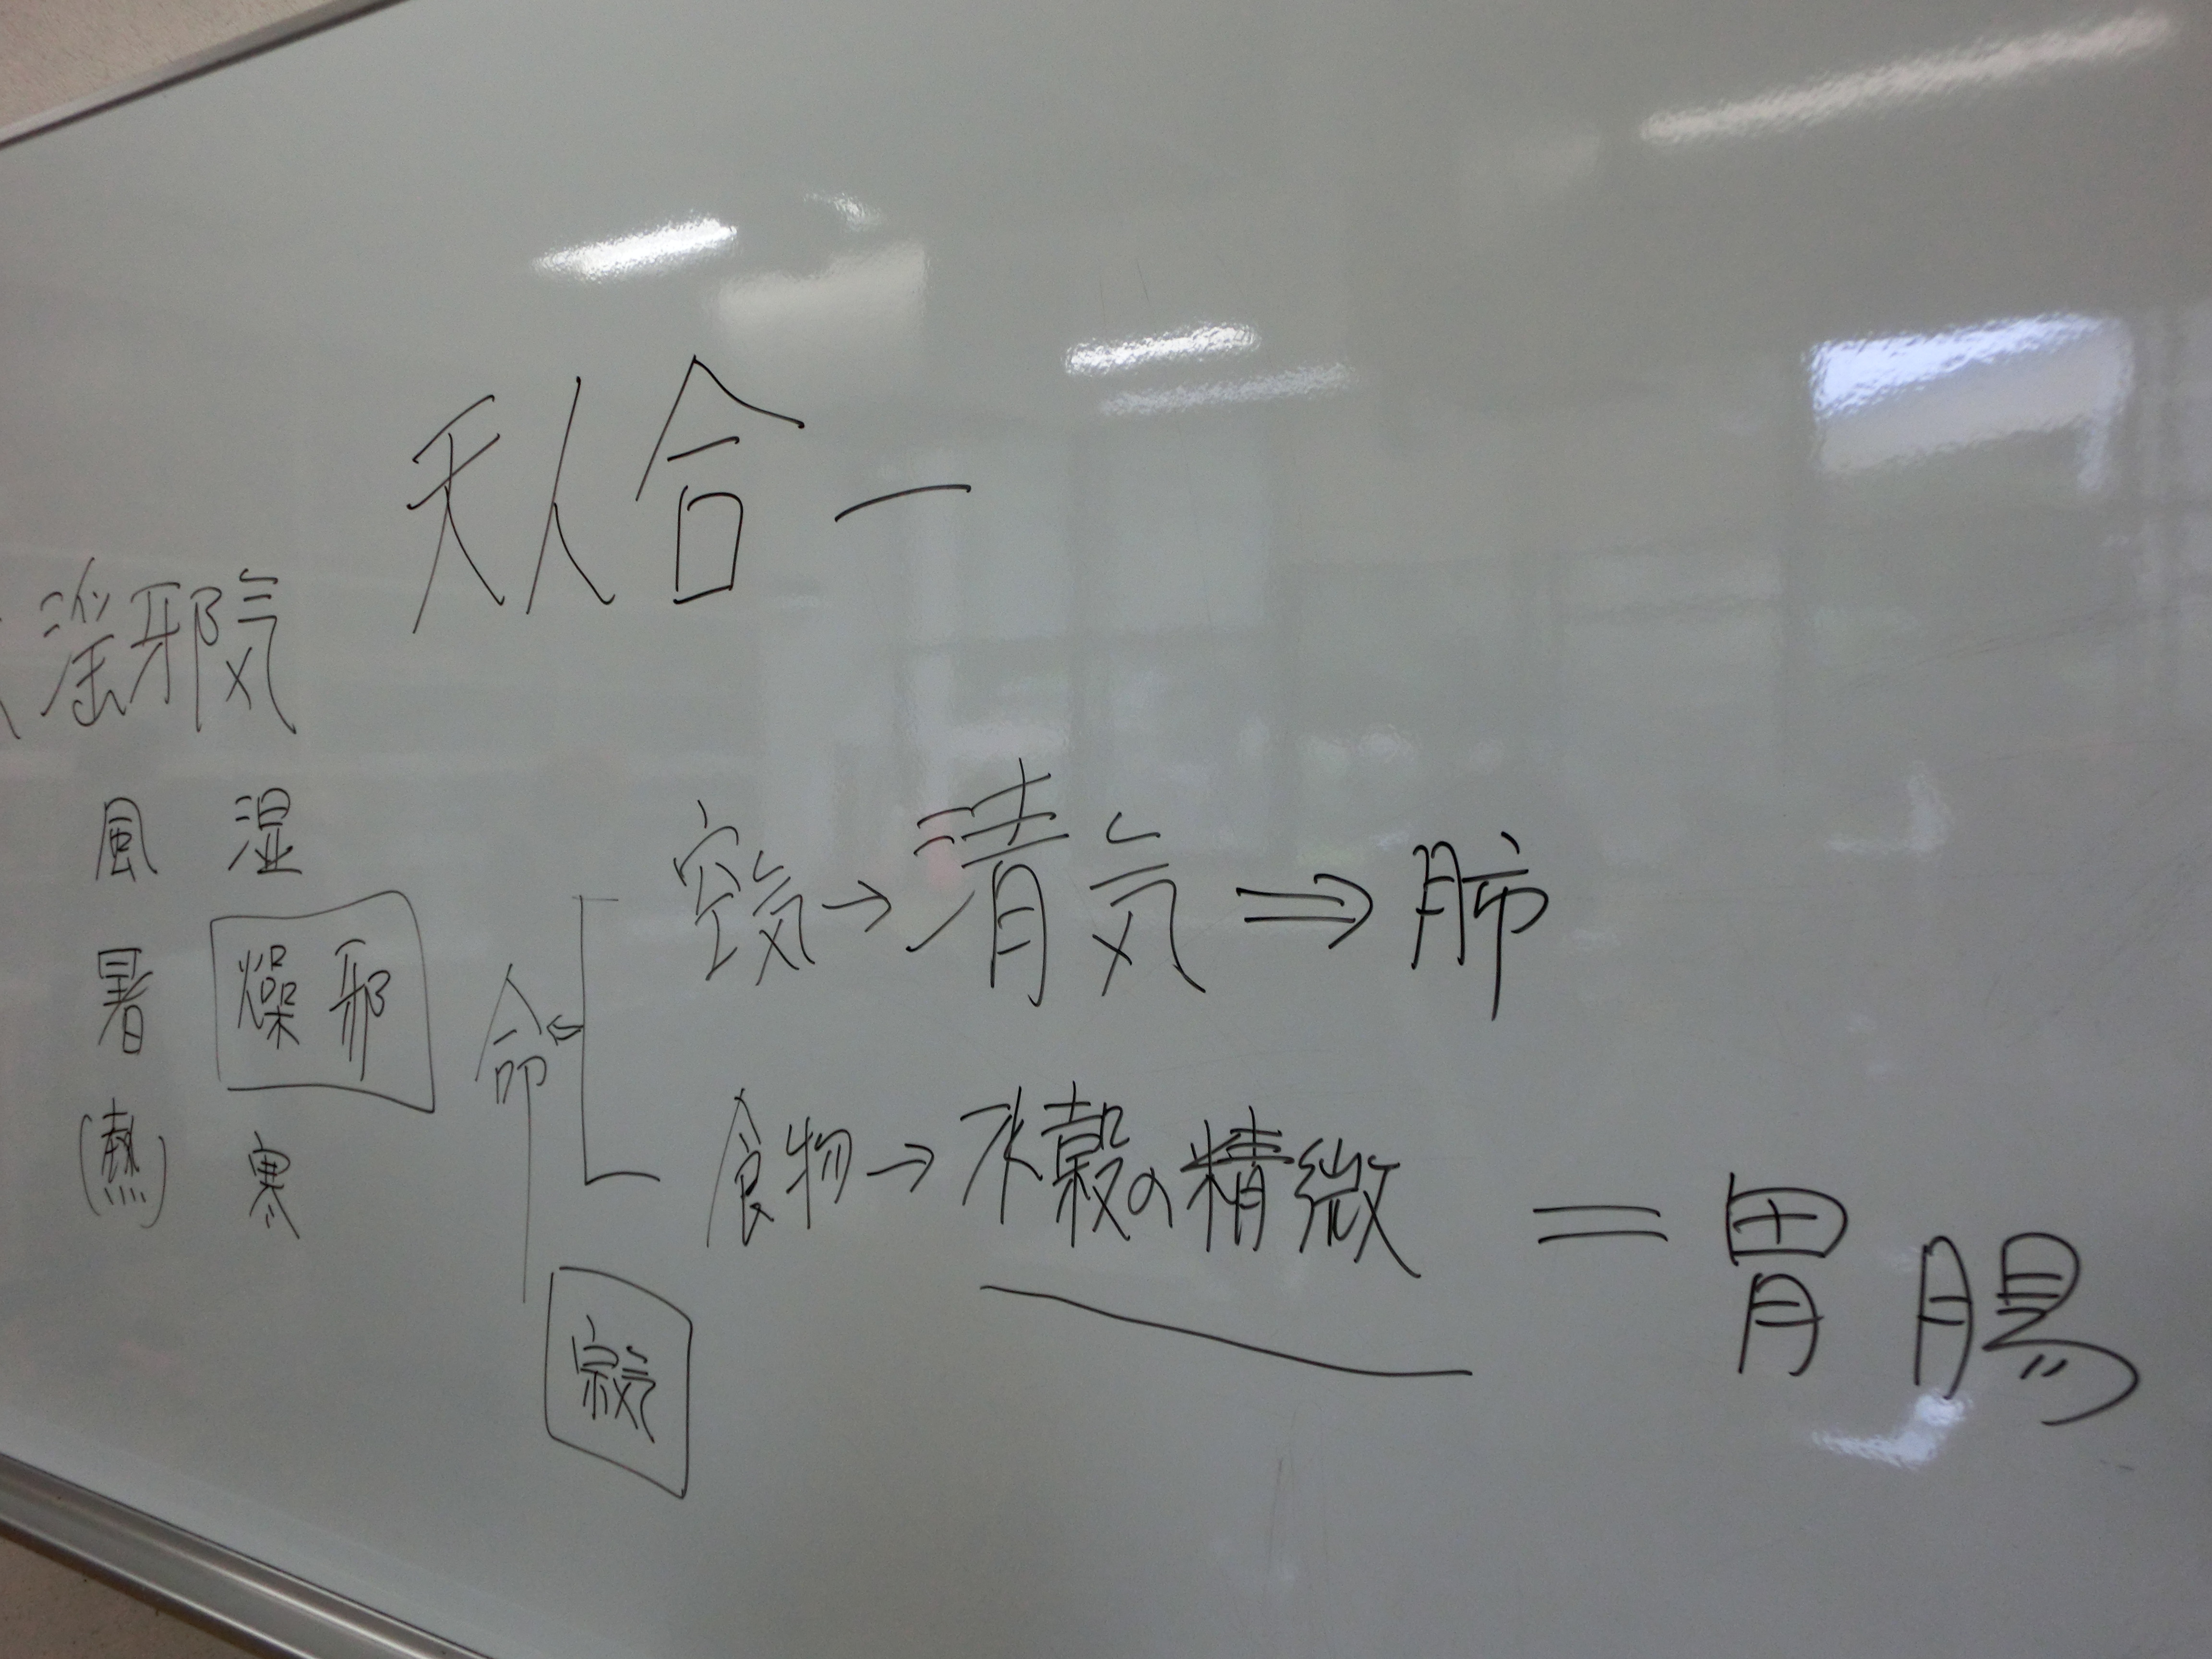 天人合一
淫邪気
風 湿
暑 燥邪
(熱) 寒
命
空気→清気⇒肺
食物→水穀の精微=胃腸